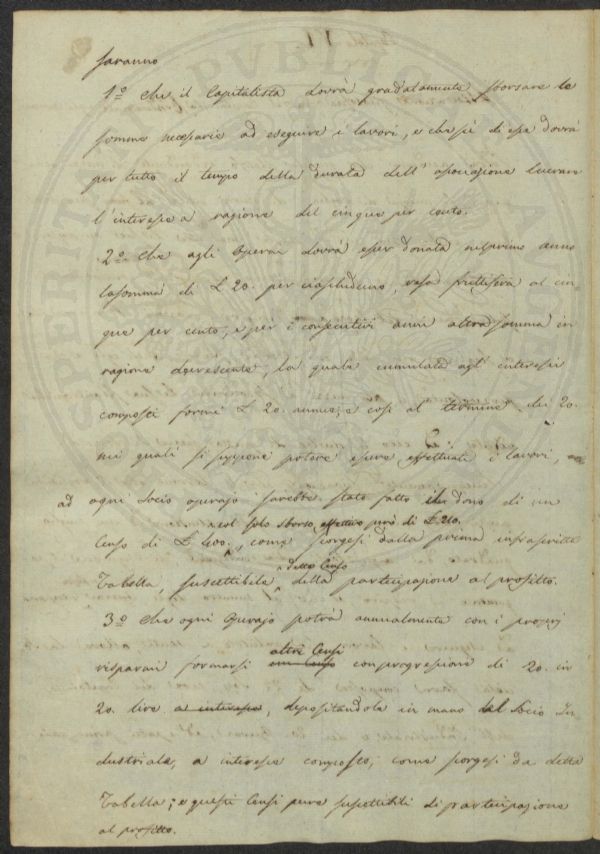 saranno
1º che il Capitalista dovrà gradatamente sborsare le
somme necessarie ad eseguire i lavori, e che di esse dovrà
per tutto il tempo della durata dell' associazione lucrare
l'interesse a ragione del cinque per cento.
2º che agli Operai dovrà esser donata nel primo anno
la somma di L 20. per ciascheduno, resa fruttifera al cin
que per cento, e per i consecutivi anni altra somma in
ragione decrescente, la quale cumulata agl' interessi
composti formi L 20. annue; e così al termine dei 20.
nei quali si suppone potere essere effettuati i lavori,
ad ogni Socio operajo sarebbe stato fatto il dono di un
e col solo sborso effettivo però di L 210.
Censo di L 400., come scorgesi dalla prima infrascritta
detto Censo
Tabella, suscettibile della partecipazione al profitto.
3º che ogni Operajo potrà annualmente con i proprj
altri Censi
risparmi formarsi con progressione di 20. in
20. lire a interesse, depositandole in mano del Socio In
dustriale, a interesse composto, come scorgesi da detta
Tabella; e questi Censi pure suscettibili di partecipazione
al profitto.